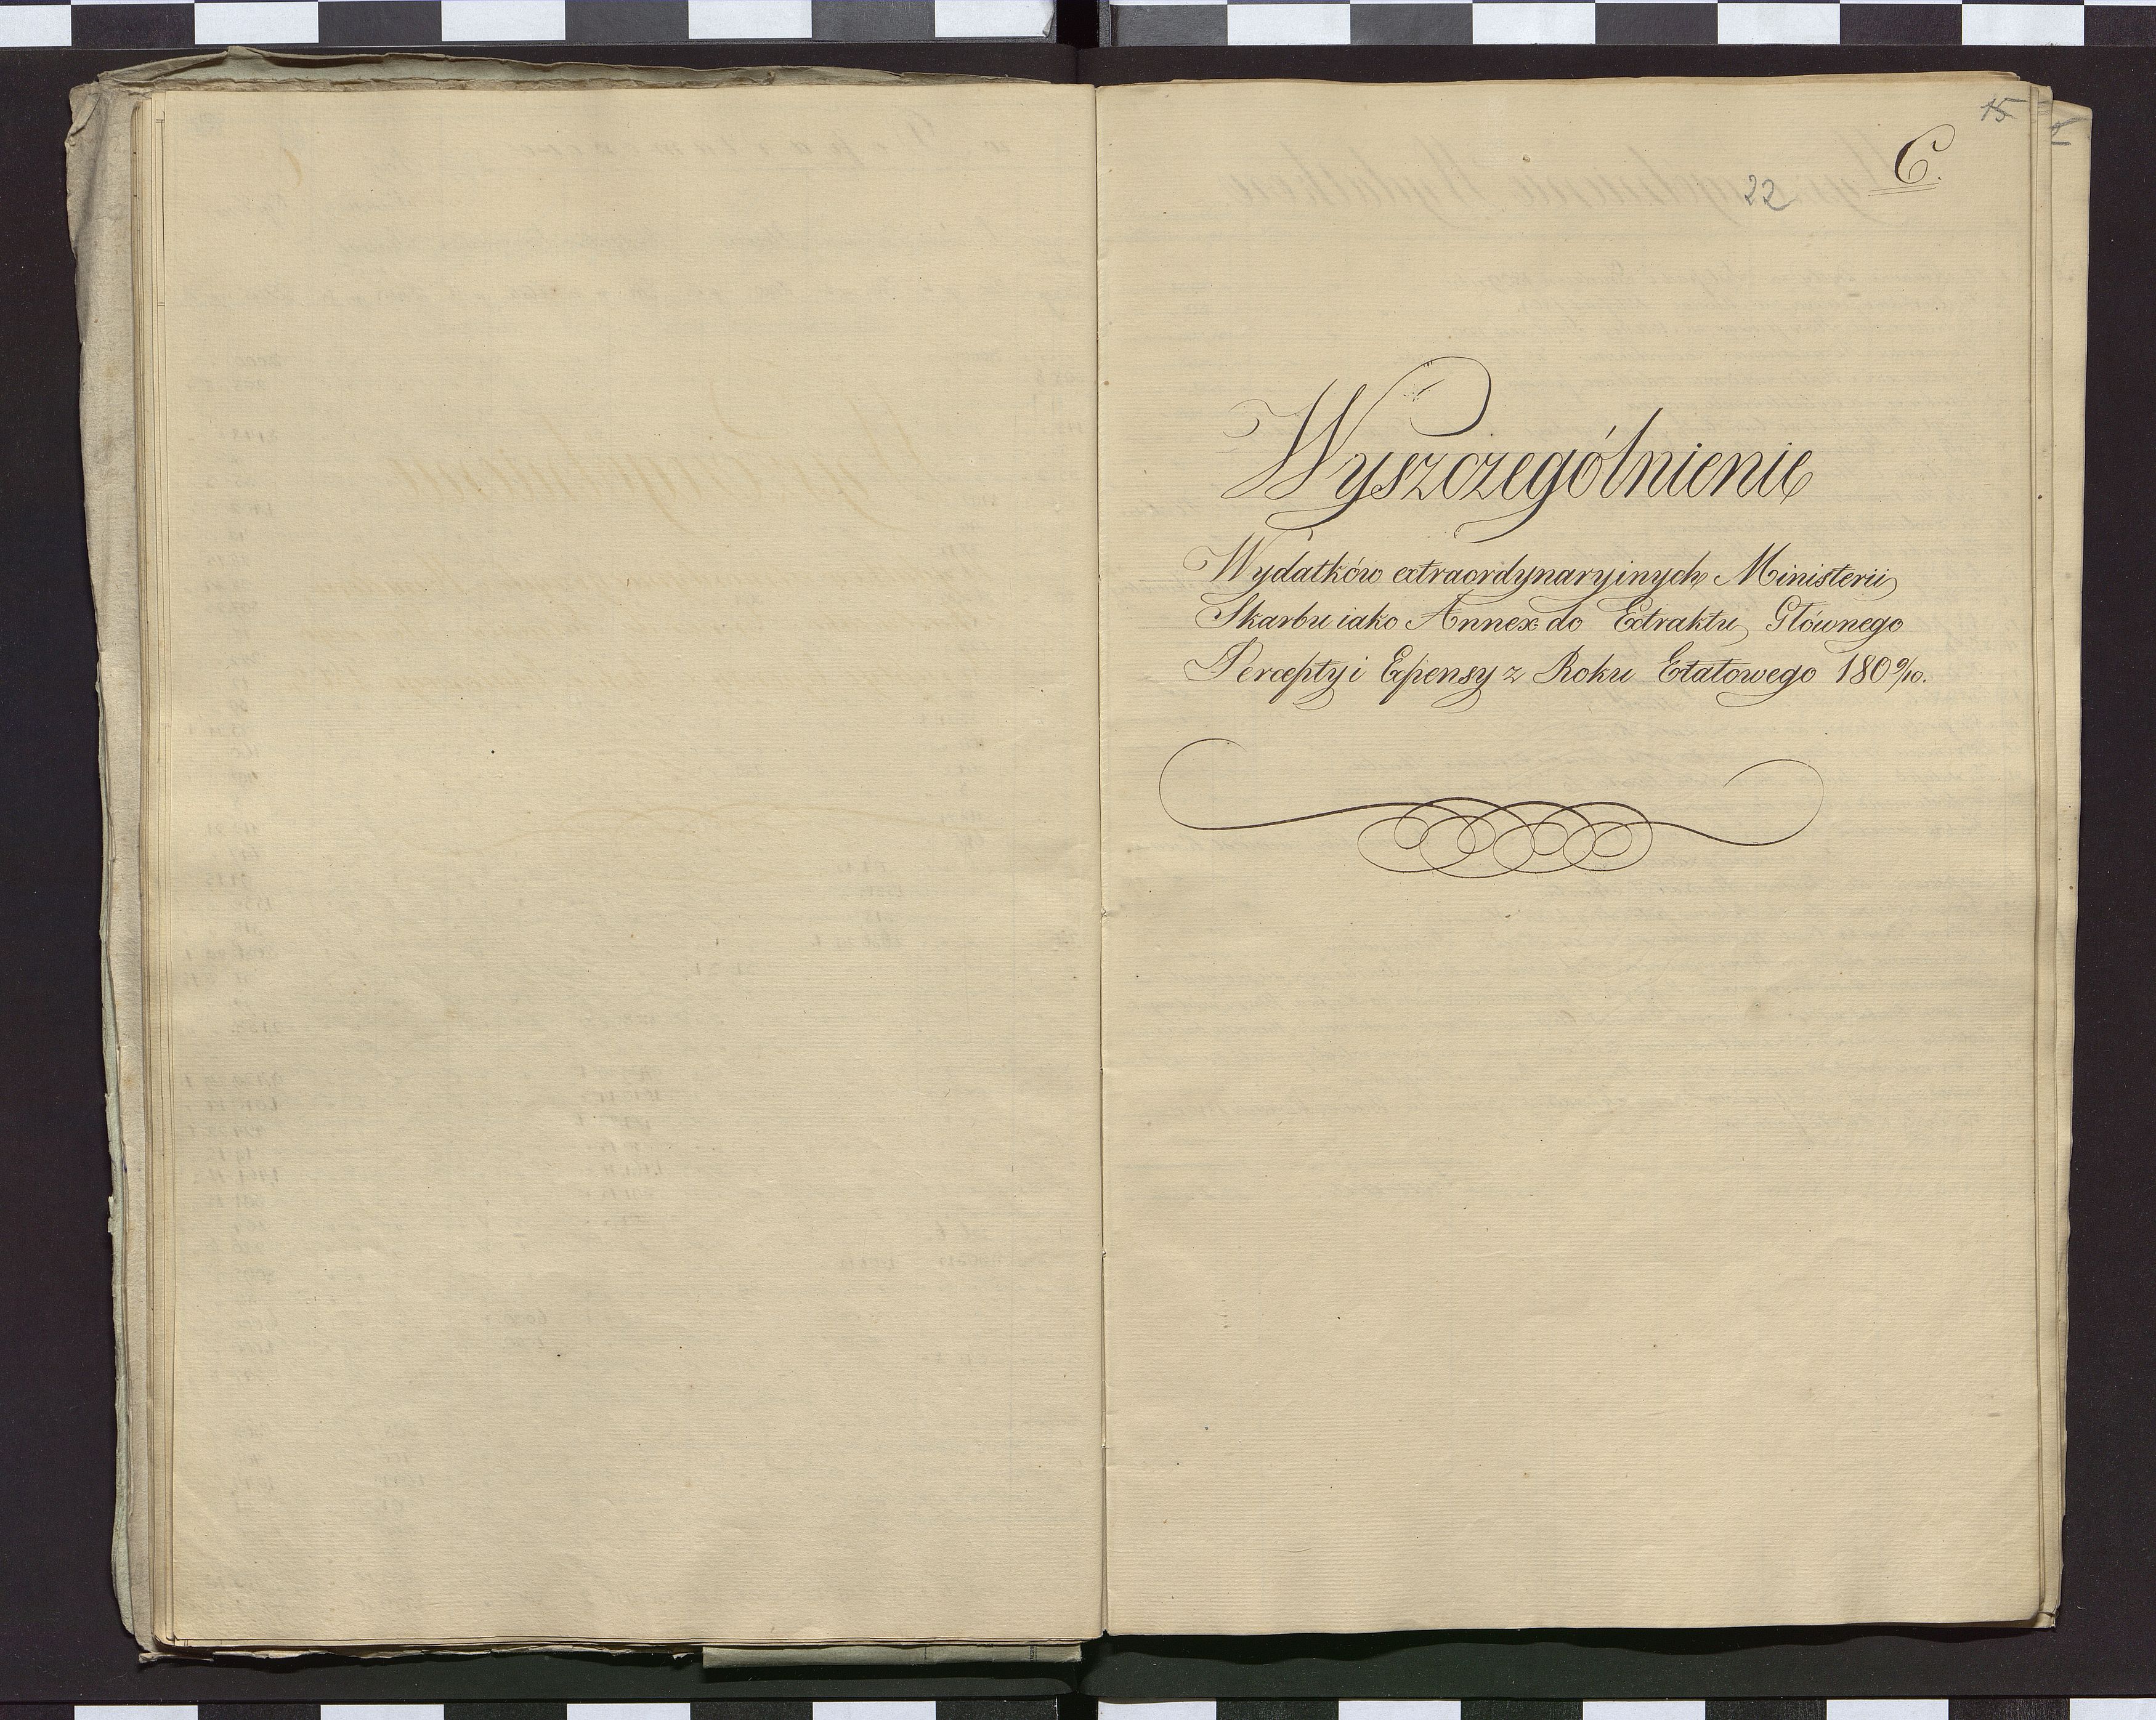 15
C.
22
Wyszczególnienie
Wydatków extraordynaryinych Ministerii
Skarbu iako Annex do Extraktu Głównego
Percepty i Expensy z Roku Etatowego 180 9/10.